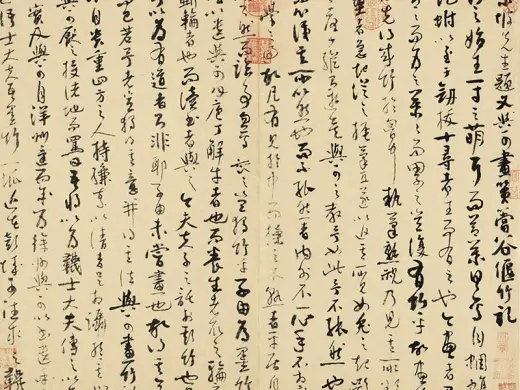 先生題文與可畫篔簹谷偃竹記
之始生一寸之萌耳而節葉具焉自蜩腹
蚹以至於劍拔十尋者生而有之也今畫者
之而為之葉葉而累之豈復有竹乎故畫
先得成竹於胸中執筆熟視乃見其所
者急起從之振筆直遂以追其所見如兔起
與可之教予如此予不能然也
以然而不能然者內外不一心手不
學之過也故凡有見於中而操之不熟者平居
然而臨事忽焉喪之豈獨竹乎子由為墨竹
以遺與可曰庖丁解牛者也而養生者取之輪
斲輪者也而讀書者與之今夫夫子之託於斯竹也
以為有道者則非耶子由未嘗畫也故得其意
已若予者豈獨得其意并得其法與可畫竹
自貴重四方之人持縑素而請者足相躡於其
與可厭之投諸地而罵曰吾將以為襪士大夫傳之以
實及與可自洋州還而余為徐州與可以書遺
語士大夫吾墨竹一派近在彭城可往求之襪